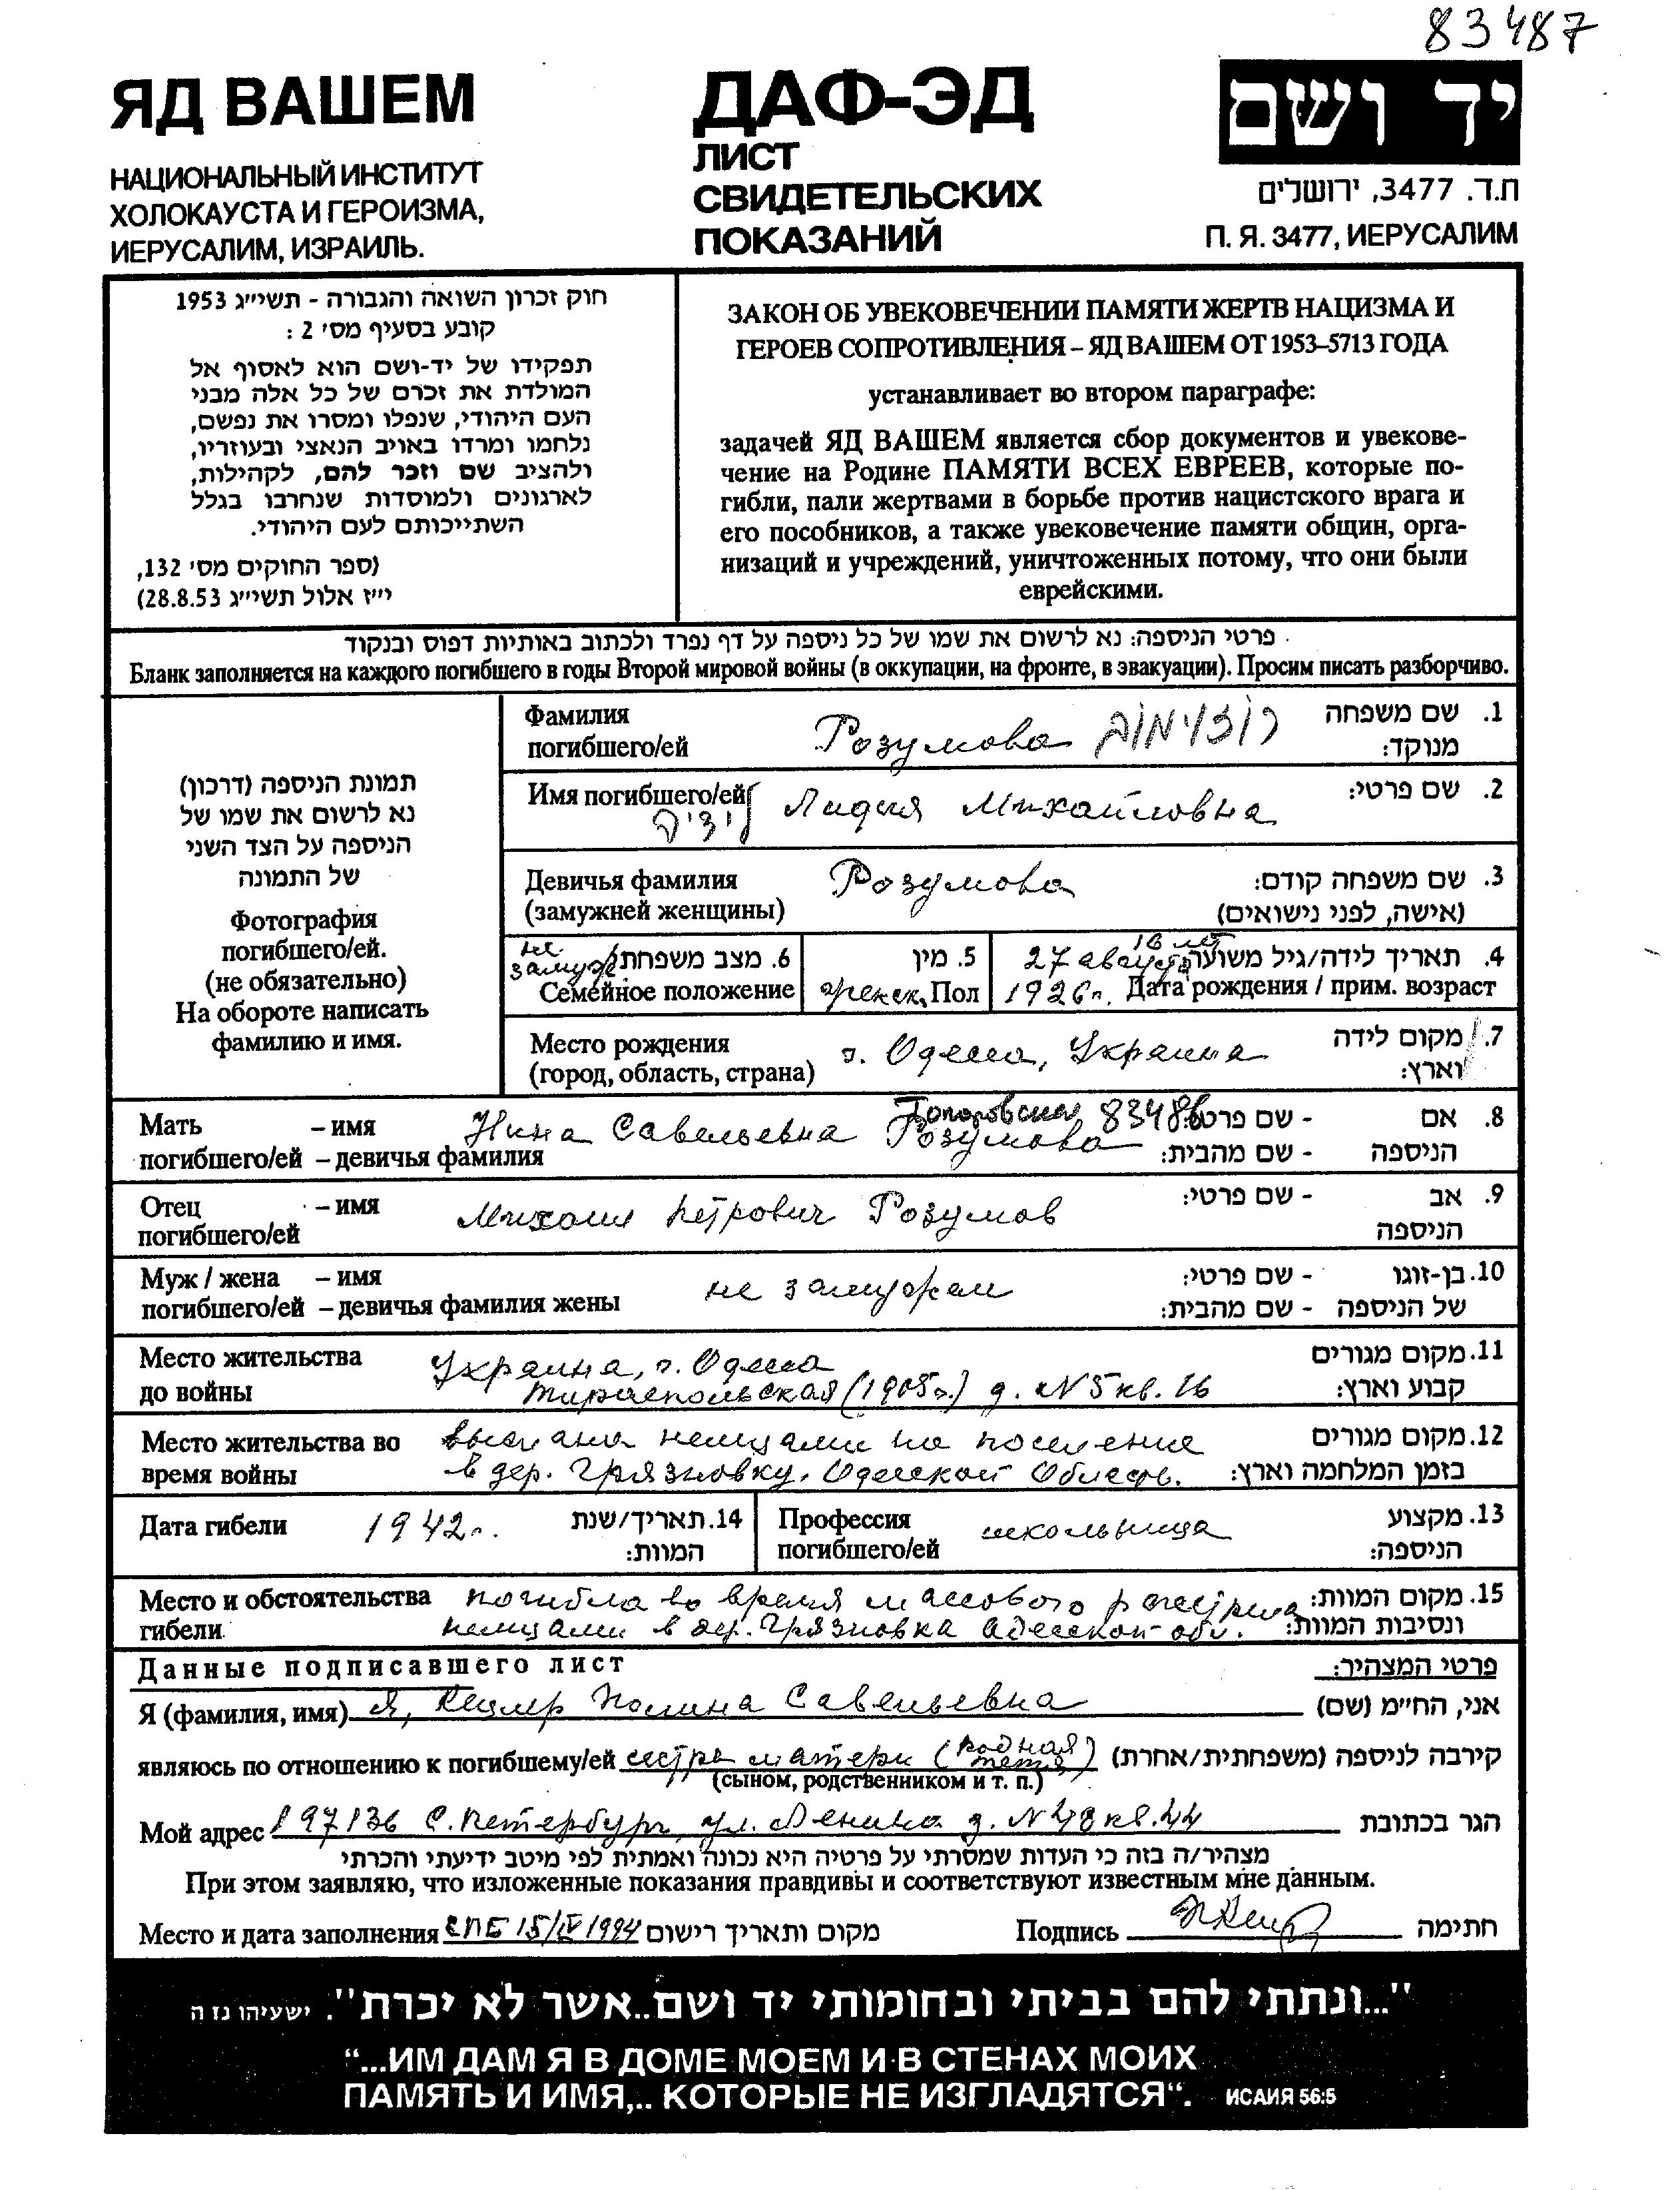 83487
ЯД ВАШЕМ
НАЦИОНАЛЬНЫЙ ИНСТИТУТ
ХОЛОКАУСТА И ГЕРОИЗМА,
ИЕРУСАЛИМ, ИЗРАИЛЬ.
ДАФ-ЭД
ЛИСТ
СВИДЕТЕЛЬСКИХ
ПОКАЗАНИЙ
יד ושם
ת.ד. 3477, ירושלים
П. Я. 3477, ИЕРУСАЛИМ
חוק זכרון השואה והגבורה - תשי״ג 1953
קובע בסעיף מס׳ 2 :
תפקידו של יד-ושם הוא לאסוף אל
המולדת את זכרם של כל אלה מבני
העם היהודי, שנפלו ומסרו את נפשם,
נלחמו ומרדו באויב הנאצי ובעוזריו,
ולהציב שם וזכר להם, לקהילות,
לארגונים ולמוסדות שנחרבו בגלל
השתייכותם לעם היהודי.
(ספר החוקים מס׳ 132,
י״ז אלול תשי״ג 28.8.53)
ЗАКОН ОБ УВЕКОВЕЧЕНИИ ПАМЯТИ ЖЕРТВ НАЦИЗМА И
ГЕРОЕВ СОПРОТИВЛЕНИЯ – ЯД ВАШЕМ ОТ 1953–5713 ГОДА
устанавливает во втором параграфе:
задачей ЯД ВАШЕМ является сбор документов и увекове-
чение на Родине ПАМЯТИ ВСЕХ ЕВРЕЕВ, которые по-
гибли, пали жертвами в борьбе против нацистского врага и
его пособников, а также увековечение памяти общин, орга-
низаций и учреждений, уничтоженных потому, что они были
еврейскими.
פרטי הניספה: נא לרשום את שמו של כל ניספה על דף נפרד ולכתוב באותיות דפוס ובנקוד
Бланк заполняется на каждого погибшего в годы Второй мировой войны (в оккупации, на фронте, в эвакуации). Просим писать разборчиво.
תמונת הניספה (דרכון)
נא לרשום את שמו של
הניספה על הצד השני
של התמונה
Фотография
погибшего/ей.
(не обязательно)
На обороте написать
фамилию и имя.
Фамилия
погибшего/ей Розумова רוזומוב
1. שם משפחה
מנוקד:
Имя погибшего/ей Лидия Михайловна
לידיה
2. שם פרטי:
Девичья фамилия Розумова
(замужней женщины)
3. שם משפחה קודם:
(אישה, לפני נישואים)
не
замуж. 6. מצב משפחתי
Семейное положение
5. מין
женск. Пол
16 лет
27 августа 4. תאריך לידה/גיל משוער
1926г. Дата рождения / прим. возраст
Место рождения г. Одесса, Украина
(город, область, страна)
7. מקום לידה
וארץ:
Мать – имя Нина Савельевна Розумова 83486
погибшего/ей – девичья фамилия
8. אם - שם פרטי:
הניספה - שם מהבית:
Отец – имя Михаил Петрович Розумов
погибшего/ей
9. אב - שם פרטי:
הניספה
Муж / жена – имя не замужем
погибшего/ей – девичья фамилия жены
10. בן-זוגו - שם פרטי:
של הניספה - שם מהבית:
Место жительства Украина, г. Одесса
до войны Тираспольская (1905г.) д. №5 кв. 16
11. מקום מגורים
קבוע וארץ:
Место жительства во выслана немцами на поселение
время войны в дер. Грязновку. Одесской Област.
12. מקום מגורים
בזמן המלחמה וארץ:
Дата гибели 1942г. 14. תאריך/שנת
המוות:
Профессия школьница
погибшего/ей
13. מקצוע
הניספה:
Место и обстоятельства погибла во время массового расстрела
гибели немцами в дер. Грязновка Одесской обл.
15. מקום המוות:
ונסיבות המוות:
Данные подписавшего лист
פרטי המצהיר:
Я (фамилия, имя) Я, Кецлер Полина Савельевна אני, הח״מ (שם)
являюсь по отношению к погибшему/ей сестра матери (родная тетя) קירבה לניספה (משפחתית/אחרת)
(сыном, родственником и т. п.)
Мой адрес 197136 С. Петербург, ул. Ленина д. №48 кв. 44 הגר בכתובת
מצהיר/ה בזה כי העדות שמסרתי על פרטיה היא נכונה ואמתית לפי מיטב ידיעתי והכרתי
При этом заявляю, что изложенные показания правдивы и соответствуют известным мне данным.
Место и дата заполнения СПБ 15/IV 1994 מקום ותאריך רישום Подпись חתימה
"...ונתתי להם בביתי ובחומותי יד ושם..אשר לא יכרת". ישעיהו נז ה
“...ИМ ДАМ Я В ДОМЕ МОЕМ И В СТЕНАХ МОИХ
ПАМЯТЬ И ИМЯ,.. КОТОРЫЕ НЕ ИЗГЛАДЯТСЯ“. ИСАИЯ 56:5